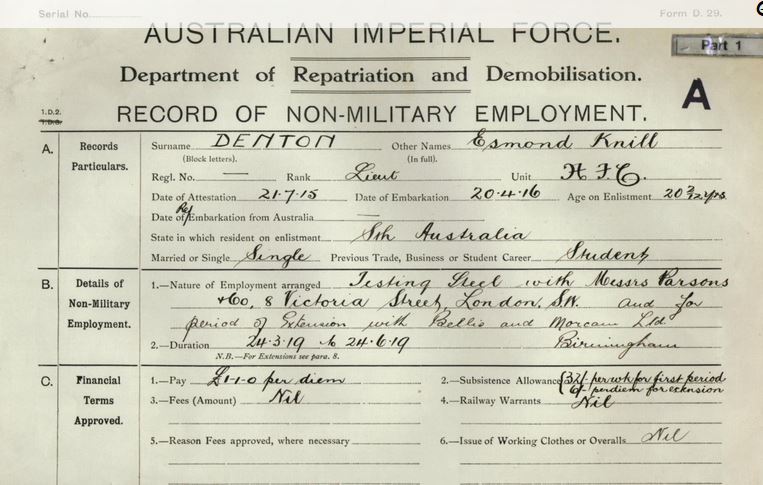 Serial No. Form D. 29.
AUSTRALIAN IMPERIAL FORCE.
Part 1
Department of Repatriation and Demobilisation.
A
1.D.2.
RECORD OF NON-MILITARY EMPLOYMENT.
A. Records Particulars.
Surname DENTON Other Names Esmond Knill
(Block letters). (In full).
Regl. No. — Rank Lieut Unit
Date of Attestation 21.7.15 Date of Embarkation 20.4.16 Age on Enlistment 20 3/12 yrs
Date of Re/Embarkation from Australia —
State in which resident on enlistment Sth Australia
Married or Single Single Previous Trade, Business or Student Career Student
B. Details of Non-Military Employment.
1.—Nature of Employment arranged Testing Steel with Messrs Parsons
+ Co, 8 Victoria Street, London. S.W. and for
period of Extension with Bellis and Morcam Ltd
2.—Duration 24.3.19 to 24.6.19 Birmingham
N.B.—For Extensions see para. 8.
C. Financial Terms Approved.
1.—Pay £1-1-0 per diem 2.—Subsistence Allowance 32/- per wk for first period
6/- per diem for extension
3.—Fees (Amount) Nil 4.—Railway Warrants Nil
5.—Reason Fees approved, where necessary 6.—Issue of Working Clothes or Overalls Nil